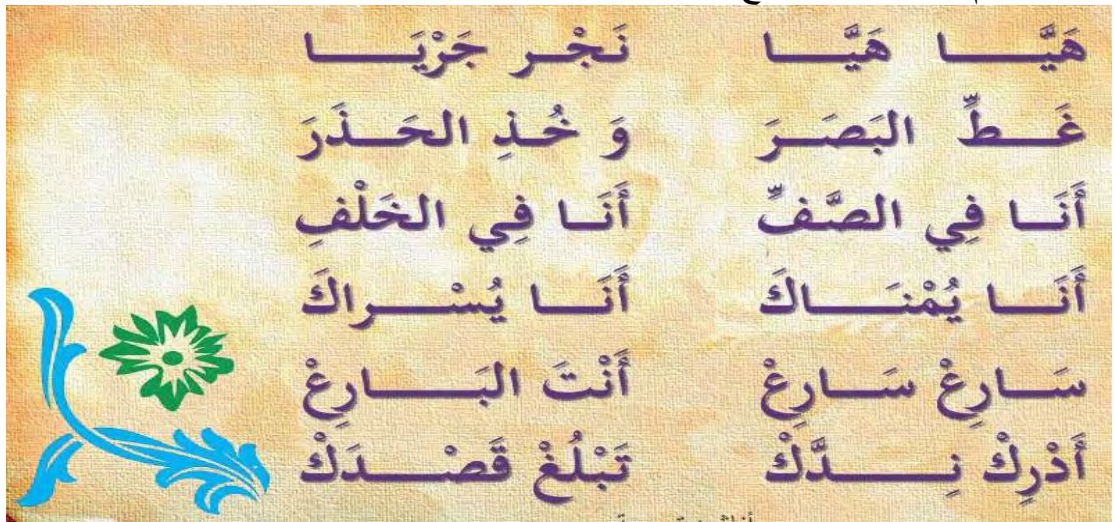 هَيَّا هَيَّا نَجْر جَرْيَا
غَطِّ البَصَرَ وَ خُذِ الحَذَرَ
أَنَا فِي الصَّفِّ أَنَا فِي الخَلْفِ
أَنَا يُمْنَاكَ أَنَا يُسْراكَ
سَارِعْ سَارِعْ أَنْتَ البَارِعْ
أَدْرِكْ نِدَّكْ تَبْلُغْ قَصْدَكْ